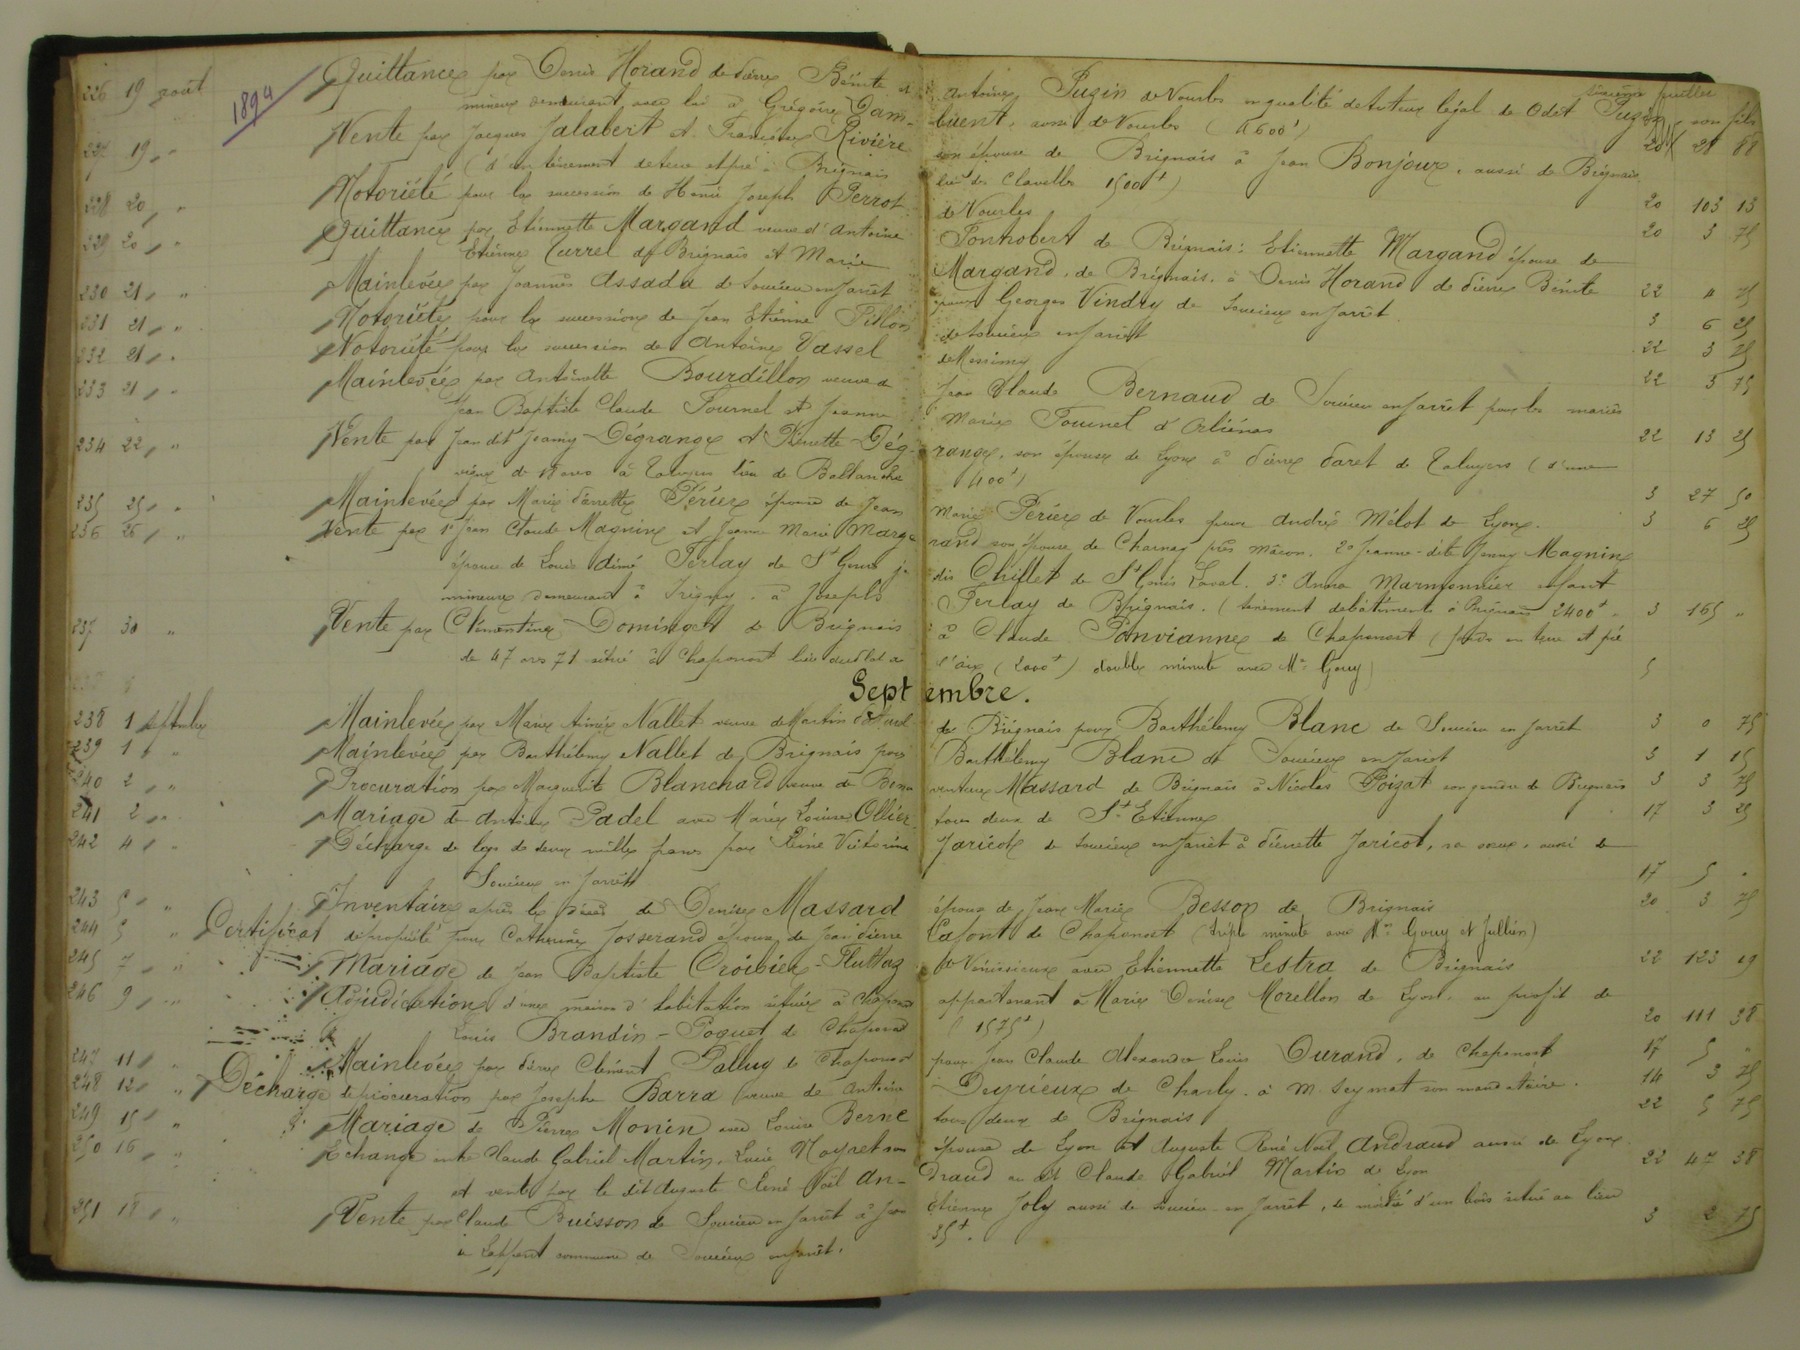 1894
226 19 août Quittance par Denis Horand de Pierre Bénite et Antoine Puzin de Vourles en qualité de tuteur légal de Odet Puzin son fils
mineur demeurant avec lui à Grégoire Dam- buent, aussi de Vourles 21 88
227 19 " " Vente par Jacques Jalabert et Françoise Rivière son épouse de Brignais à Jean Bonjour, aussi de Brignais
(d'un tènement de terre et pré à Brignais lieu des Clavelles 1500f) 20 103 13
228 20 " " Notoriété pour la succession de Henri Joseph Perrot de Vourles 20 3 75
229 20 " " Quittance par Etiennette Margand veuve d'Antoine Fonrobert de Brignais; Etiennette Margand épouse de
Etienne Currel de Brignais et Marie Margand, de Brignais, à Denis Horand de Pierre Bénite 22 4 75
230 21 " " Mainlevée par Joannès Assada de Soucieu en Jarrêt pour Georges Vindry de Soucieu en Jarrêt 3 6 25
231 21 " " Notoriété pour la succession de Jean Etienne Pillon de Soucieu en Jarrêt 22 3 75
232 21 " " Notoriété pour la succession de Antoine Vassel de Messimy 22 3 75
233 21 " " Mainlevée par Antoinette Bourdillon veuve de Jean Claude Bernaud de Soucieu en Jarrêt pour les mariés
Jean Baptiste Claude Fournel et Jeanne Marie Fournel d'Orliénas 22 13 25
234 22 " " Vente par Jean dit Jeamy Dégrange et Pierrette Dég- range, son épouse de Lyon à Pierre Paret de Taluyers (d'une
vigne de ares à Taluyers lieu de Baltanche 400f) 3 27 50
235 25 " " Mainlevée par Marie Pierrette Périer épouse de Jean Marie Périer de Vourles pour André Mélot de Lyon. 3 6 25
236 26 " " Vente par 1° Jean Claude Magnin et Jeanne Marie Marge rand son épouse de Charnay près Mâcon. 2° Jeanne-dite Jenny Magnin
épouse de Louis Aimé Perlay de St Genis 3° Anna Marmonnier enfant
mineure demeurant à Irigny, à Joseph Perlay de Brignais. (tènement de bâtiments à Brignais 2400f " 3 165 "
237 30 " Vente par Clémentine Domingot de Brignais à Claude Ponvianne de Chaponost (fonds en terre et pré
de 47 ares 71 situé à Chaponost lieu (2000f) double minute avec Me Gouy) 5
Septembre.
238 1 septembre Mainlevée par Marie Aimée Nallet veuve de Martin de Brignais pour Barthélemy Blanc de Soucieu en Jarrêt 3 0 75
239 1 " " Mainlevée par Barthélemy Nallet de Brignais pour Barthélemy Blanc de Soucieu en Jarrêt 3 1 15
240 2 " " Procuration par Marguerite Blanchard veuve de Bona venture Massard de Brignais à Nicolas Poizat son gendre de Brignais 3 3 75
241 2 " " Mariage de Antoine Padel avec Marie Louise Ollier tous deux de St Etienne 17 3 25
242 4 " " Décharge de legs de deux mille francs par Reine Victorine Jaricot de Soucieu en Jarrêt à Pierrette Jaricot, sa soeur, aussi de
Soucieu en Jarrêt 17 5 "
243 5 " " Inventaire après le décès de Denise Massard épouse de Jean Marie Besson de Brignais 20 3 75
244 5 " Certificat de propriété pour Catherine Josserand épouse de Jean Pierre Lafont de Chaponost (triple minute avec Mes Gouy et Jullien)
245 7 " " Mariage de Jean Baptiste Croibier-Fluttaz de Vénissieux avec Etiennette Lestra de Brignais 22 123 19
246 9 " " Adjudication d'une maison d'habitation située à Chaponost appartenant à Marie Denise Morellon de Lyon, au profit de
Louis Brandin-Poquet de Chaponost (1575f) 20 111 38
247 11 " " Mainlevée par Pierre Clément Palluy de Chaponost pour Jean Claude Alexandre Louis Durand, de Chaponost 17 5 "
248 12 " " Décharge de procuration par Josephe Barra veuve de Antoine Deyrieux de Charly, à M. Seymat son mandataire. 14 3 75
249 15 " " Mariage de Pierre Monin avec Louise Berne tous deux de Brignais 22 5 75
250 16 " " Echange entre Claude Gabriel Martin, Lucie Noyret son épouse de Lyon et Auguste René Noël Andraud aussi de Lyon
et vente par le dit Auguste René Noël An- draud au dit Claude Gabriel Martin de Lyon 22 47 38
251 18 " " Vente par Claude Buisson de Soucieu en Jarrêt à Jean Etienne Joly aussi de Soucieu en Jarrêt, de moitié d'un bois situé au lieu
commune de Soucieu en Jarrêt. 35f. 3 2 75